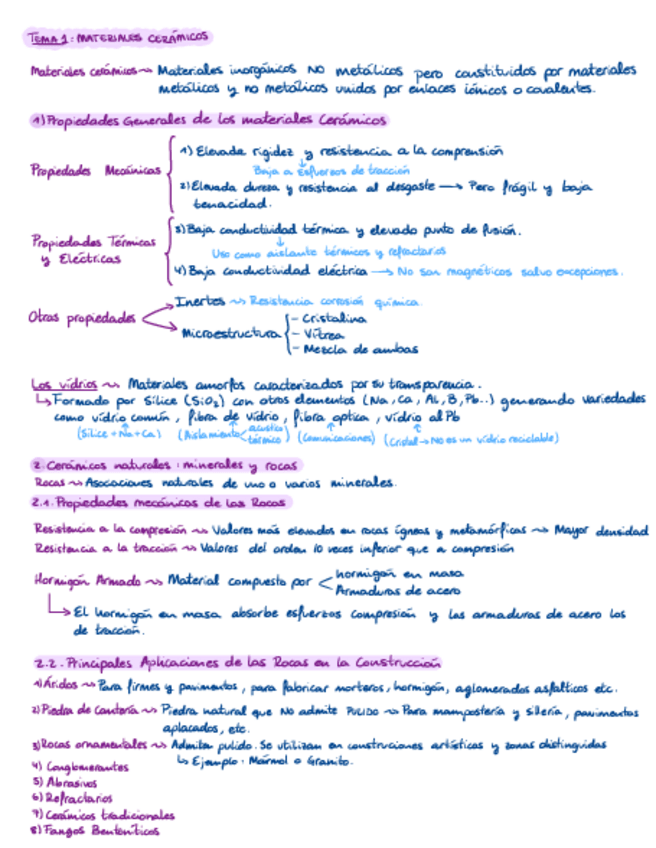 TEMA 1: MATERIALES CERÁMICOS
Materiales cerámicos ~> Materiales inorgánicos NO metálicos pero constituidos por materiales
metálicos y no metálicos unidos por enlaces iónicos o covalentes.
1) Propiedades Generales de los materiales Cerámicos
Propiedades Mecánicas
1) Elevada rigidez y resistencia a la comprensión
Baja a Esfuerzos de tracción
2) Elevada dureza y resistencia al desgaste → Pero frágil y baja
tenacidad.
Propiedades Térmicas
y Eléctricas
3) Baja conductividad térmica y elevado punto de fusión.
Uso como aislante térmicos y refractarios
4) Baja conductividad eléctrica → No son magnéticos salvo excepciones.
Otras propiedades
Inertes ~> Resistencia corrosión química.
Microestructura
- Cristalina
- Vítrea
- Mezcla de ambas
Los vidrios ~> Materiales amorfos caracterizados por su transparencia.
↳ Formado por Sílice (SiO₂) con otros elementos (Na, Ca, Al, B, Pb..) generando variedades
como vidrio común, fibra de vidrio, fibra optica, vidrio al Pb
(Sílice + Na + Ca) (Aislamiento acustico térmico) (Comunicaciones) (Cristal → No es un vidrio reciclable)
2. Cerámicos naturales: minerales y rocas
Rocas ~> Asociaciones naturales de uno o varios minerales.
2.1. Propiedades mecánicas de las Rocas
Resistencia a la compresión ~> Valores más elevados en rocas ígneas y metamórficas ~> Mayor densidad
Resistencia a la tracción ~> Valores del orden 10 veces inferior que a compresión
Hormigón Armado ~> Material compuesto por < hormigón en masa
Armaduras de acero
↳ El hormigón en masa absorbe esfuerzos compresión y las armaduras de acero los
de tracción.
2.2. Principales Aplicaciones de las Rocas en la Construcción
1) Áridos ~> Para firmes y pavimentos, para fabricar morteros, hormigón, aglomerados asfálticos etc.
2) Piedra de Cantería ~> Piedra natural que NO admite PULIDO ~> Para mampostería y sillería, pavimentos
aplacados, etc.
3) Rocas ornamentales ~> Admiten pulido. Se utilizan en construciones artísticas y zonas distinguidas
↳ Ejemplo: Mármol o Granito.
4) Conglomerantes
5) Abrasivos
6) Refractarios
7) Cerámicos tradicionales
8) Fangos Bentoníticos